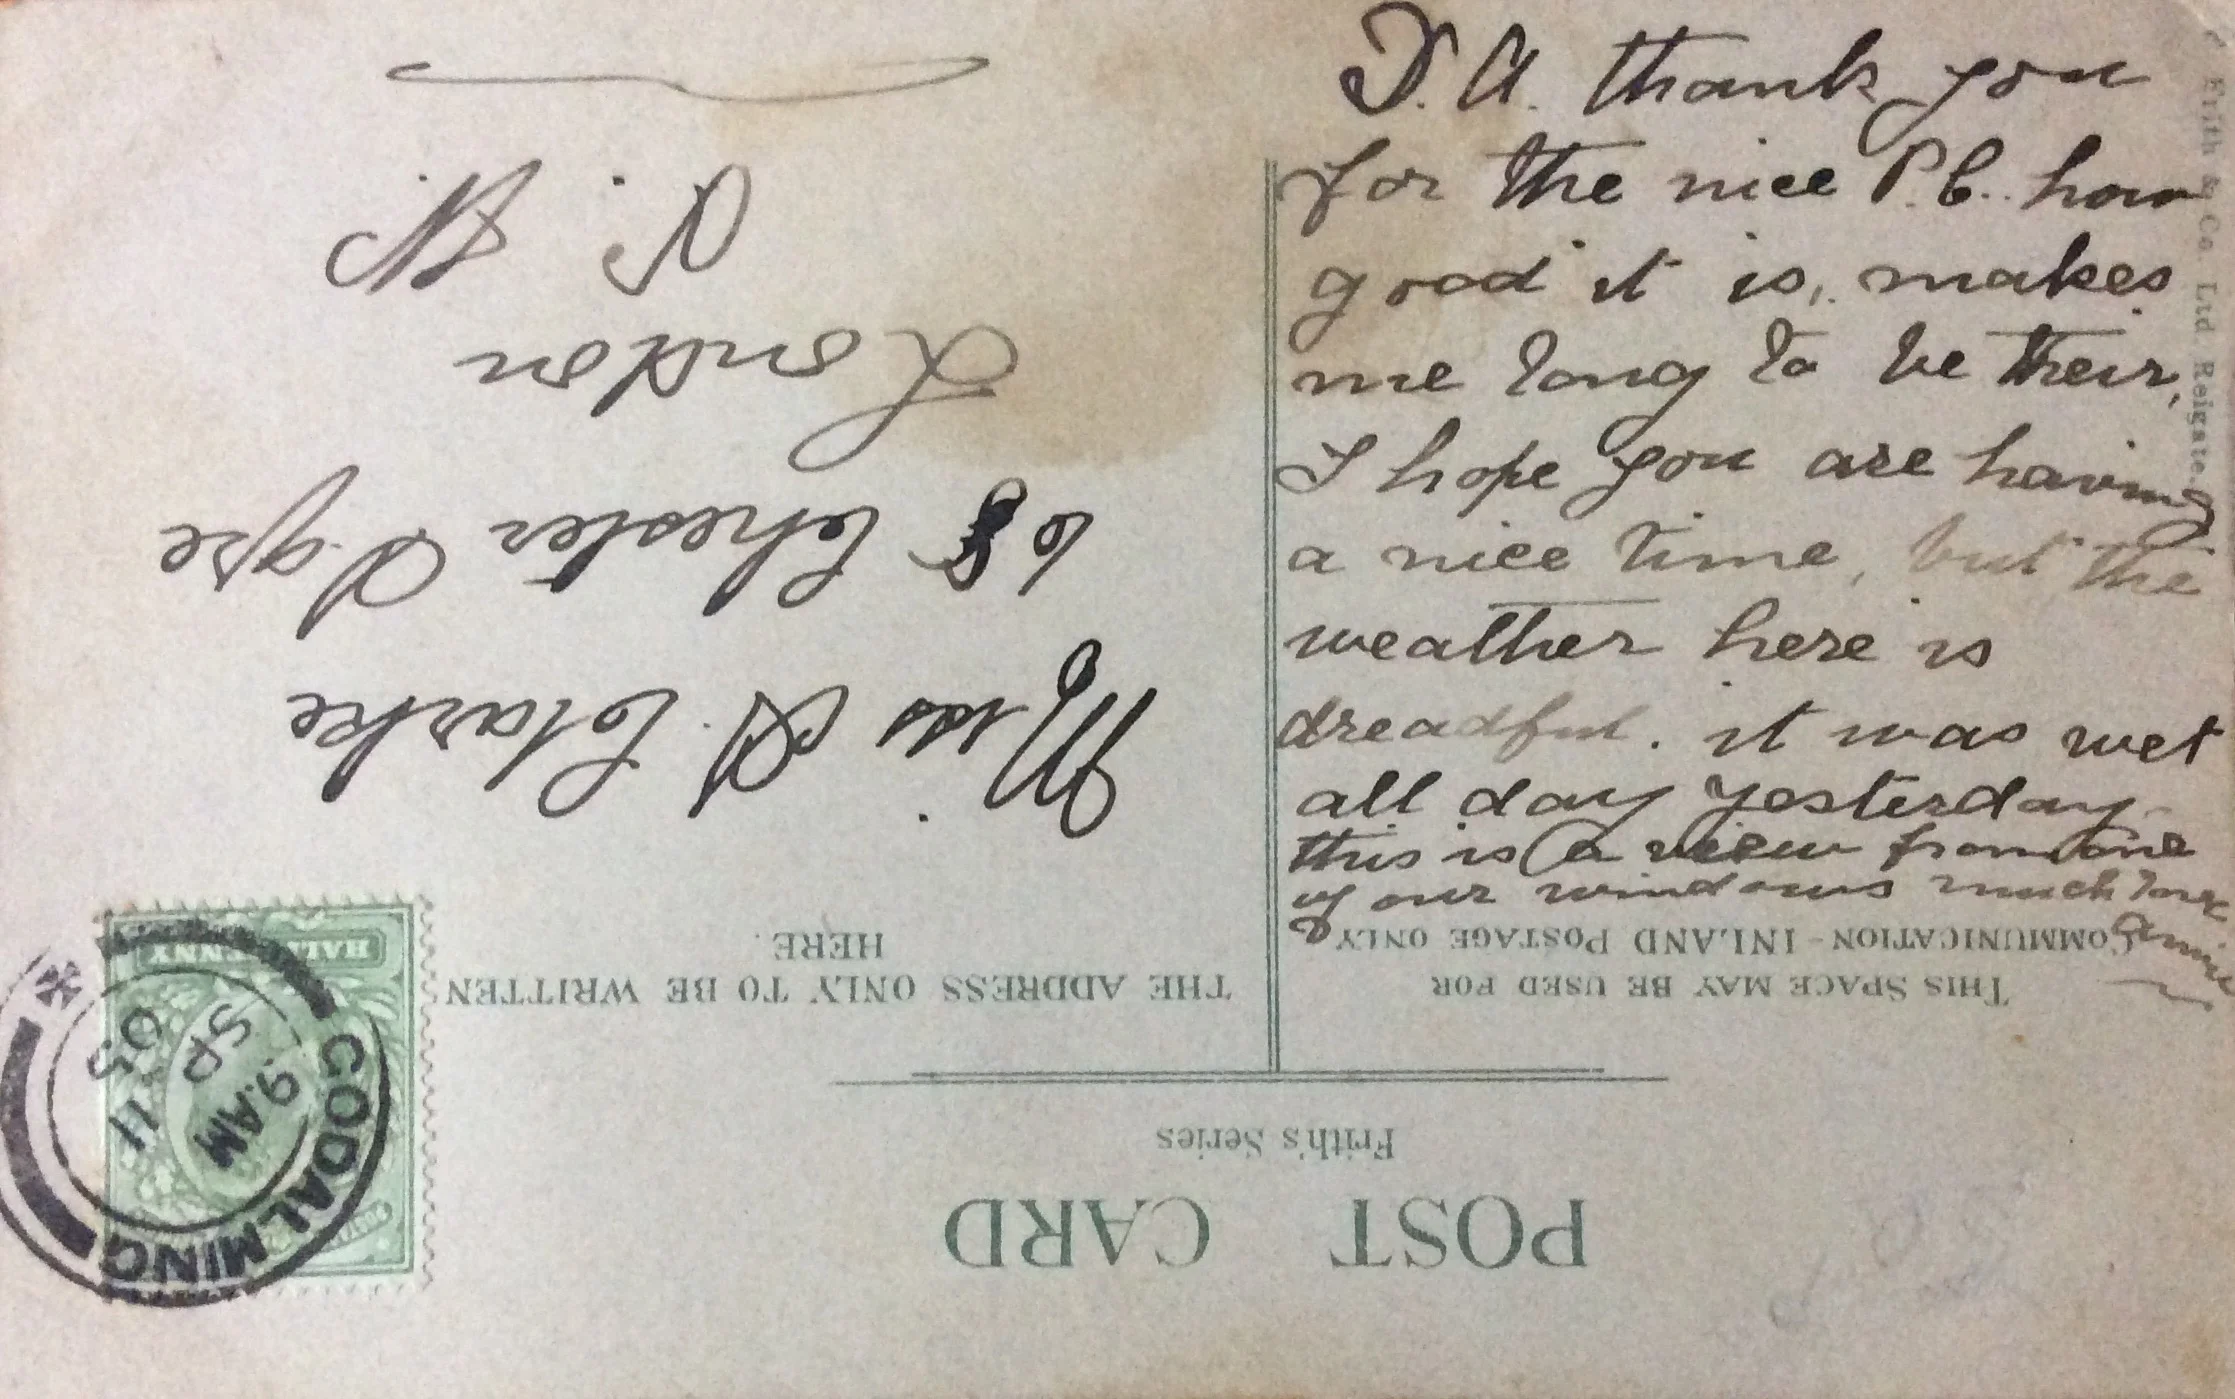 POST CARD
Frith's Series
THIS SPACE MAY BE USED FOR
COMMUNICATION - INLAND POSTAGE ONLY
THE ADDRESS ONLY TO BE WRITTEN
HERE.
HALFPENNY
GODALMING
9.AM
SP 11
05
Miss A. Clarke
68 Chester Sqre
London
S. W
D. A. thank you
for the nice P.C. how
good it is, makes
me long to be their,
I hope you are having
a nice time, but the
weather here is
dreadful. it was wet
all day yesterday
this is a view from one
of our windows much love
Annie
Frith & Co. Ltd. Reigate